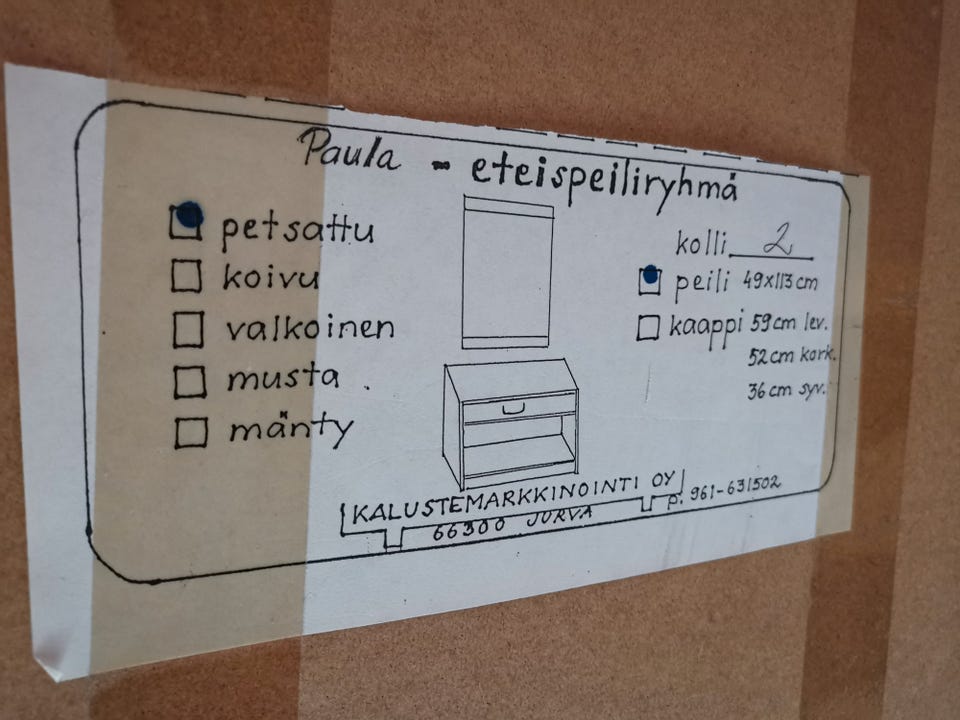 Paula - eteispeiliryhmä
petsattu
koivu
valkoinen
musta .
mänty
kolli 2
peili 49x113 cm
kaappi 59 cm lev.
52 cm kork.
36 cm syv.
KALUSTEMARKKINOINTI OY
66300 JURVA
p. 961-631502